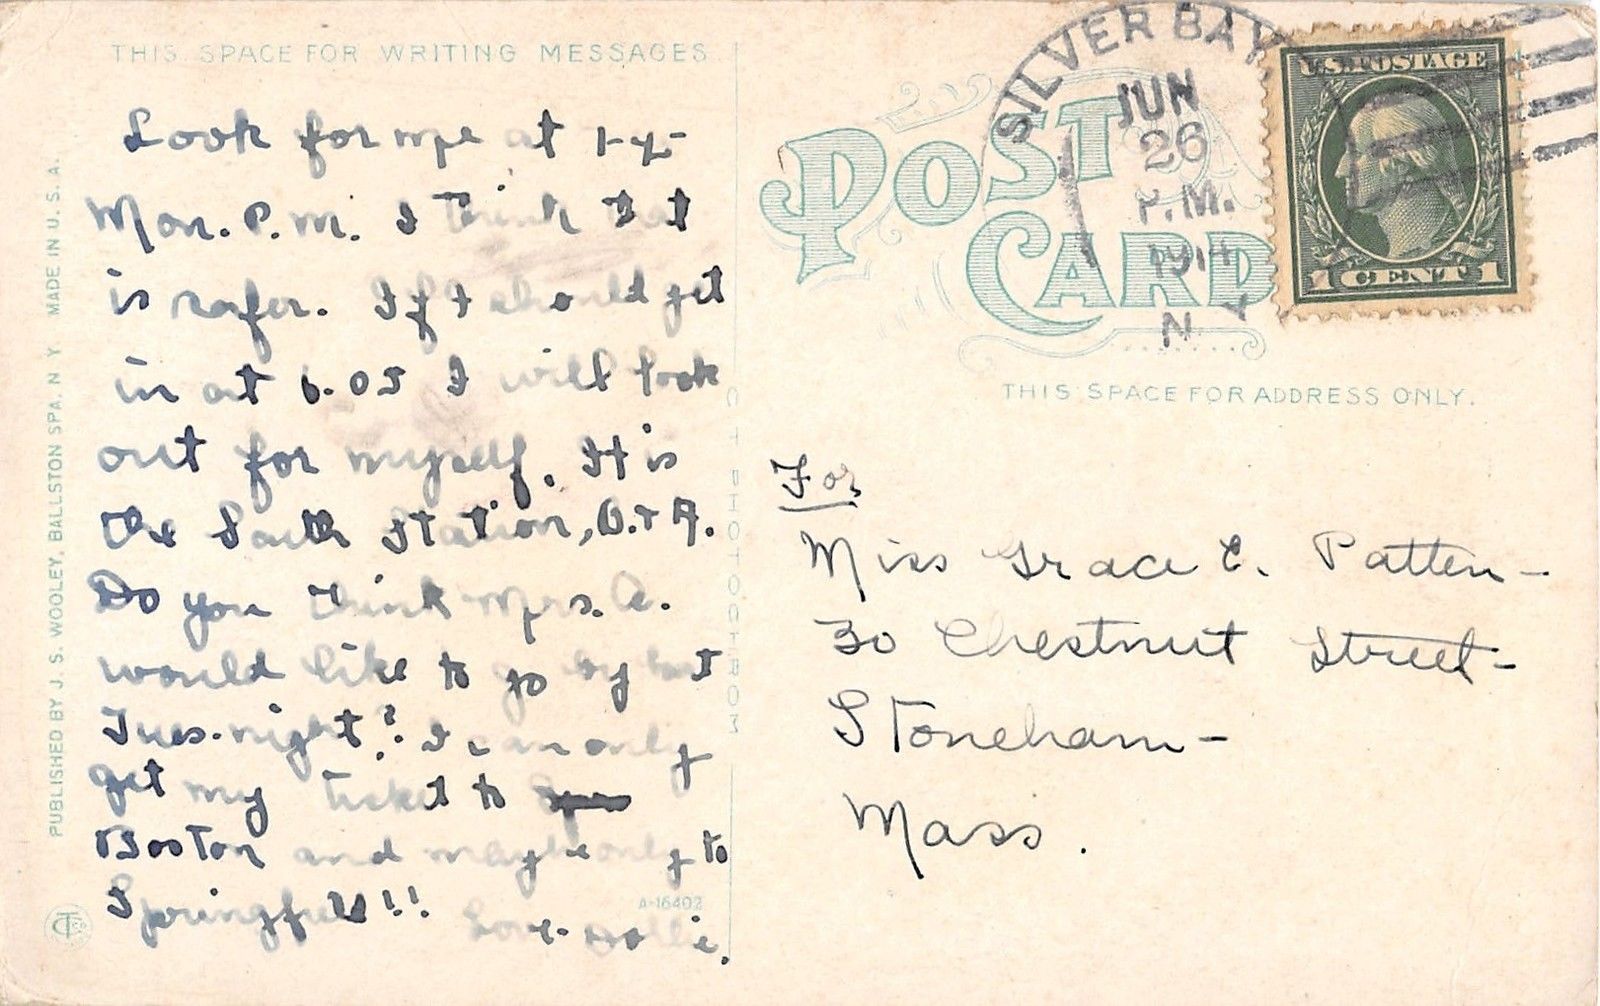 THIS SPACE FOR WRITING MESSAGES
Look for me at
Mon. P.M. I think that
is safer. If I should get
in at 6.05 I will look
out for myself. It is
the South Station, B. & A.
Do you think Mrs. A.
would like to go by boat
Tues. night? I can only
get my ticket to
Boston and maybe only to
Springfield!!
Love- Dollie.
A-16402
PUBLISHED BY J. S. WOOLEY, BALLSTON SPA, N Y MADE IN U. S. A.
C T PHOTOCHROM
POST CARD
SILVER BAY
JUN
26
P.M.
1914
N Y
U.S. POSTAGE
1 CENT 1
THIS SPACE FOR ADDRESS ONLY.
For
Miss Grace E. Patten-
30 Chestnut Street-
Stoneham-
Mass.